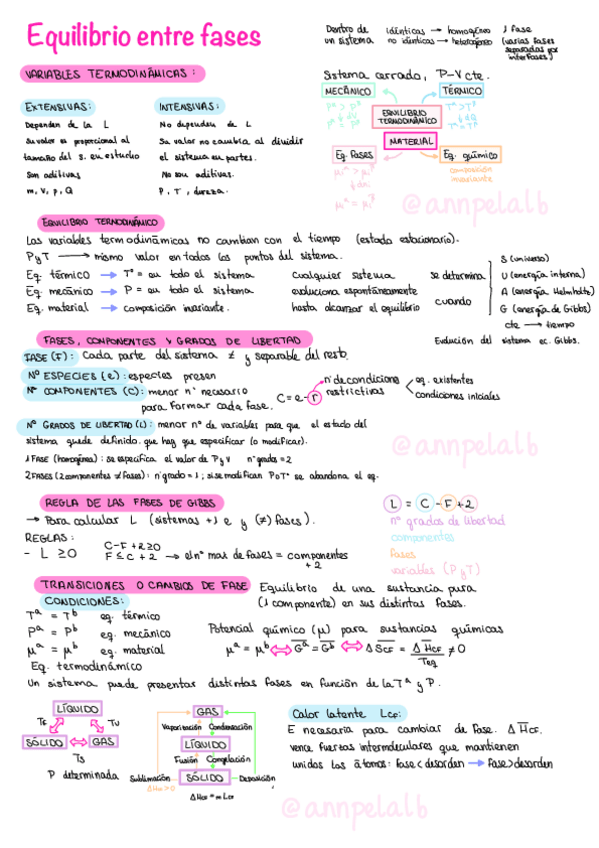 Equilibrio entre fases
Dentro de un sistema
idénticas → homogéneo 1 fase
no idénticas → heterogéneo (varias fases separadas por interfases)
VARIABLES TERMODINÁMICAS:
EXTENSIVAS:
Dependen de la L
Su valor es proporcional al
tamaño del s. en estudio
Son aditivas
m, V, p, Q
INTENSIVAS:
No dependen de L
Su valor no cambia al dividir
el sistema en partes.
No son aditivas.
P, T, dureza.
Sistema cerrado, P-V cte.
MECÁNICO
TÉRMICO
EQUILIBRIO TERMODINÁMICO
MATERIAL
Eq. fases
Eq. químico
composición
invariante
@annpelalb
EQUILIBRIO TERMODINÁMICO
Las variables termodinámicas no cambian con el tiempo (estado estacionario).
P y T → mismo valor en todos los puntos del sistema.
Eq. térmico → Tª = en todo el sistema
Eq. mecánico → P = en todo el sistema
Eq. material → composición invariante.
Cualquier sistema
evoluciona espontáneamente
hasta alcanzar el equilibrio
se determina
cuando
S (universo)
U (energía interna)
A (energía Helmholtz)
G (energía de Gibbs)
cte → tiempo
Evolución del sistema ec. Gibbs.
FASES, COMPONENTES Y GRADOS DE LIBERTAD
FASE (F): Cada parte del sistema ≠ y separable del resto.
Nº ESPECIES (e): especies presen
Nº COMPONENTES (C): menor nº necesario
para formar cada fase.
C = e - r
nº de condiciones
restrictivas
eq. existentes
condiciones iniciales
Nº GRADOS DE LIBERTAD (L): menor nº de variables para que el estado del
sistema quede definido. que hay que especificar (o modificar).
1 FASE (homogénea): se especifica el valor de P y V nº grados = 2
2 FASES (2 componentes ≠ fases): nº grado = 1; si se modifican P o Tª se abandona el eq.
@annpelalb
REGLA DE LAS FASES DE GIBBS
→ Para calcular L (sistemas +1 e y (≠) fases).
REGLAS:
- L ≥ 0
C-F+2≥0
F ≤ C + 2 → el nº max de fases = componentes
+2
L = C - F + 2
nº grados de libertad
componentes
fases
variables (P y T)
TRANSICIONES O CAMBIOS DE FASE
Equilibrio de una sustancia pura
(1 componente) en sus distintas fases.
CONDICIONES:
Tᵃ = Tᵇ eq. térmico
Pᵃ = Pᵇ eq. mecánico
μᵃ = μᵇ eq. material
Eq. termodinámico
Potencial químico (μ) para sustancias químicas
μᵃ = μᵇ ⇔ G̅ᵃ = G̅ᵇ ⇔ ΔS̅CF = ΔH̅CF / Teq ≠ 0
Un sistema puede presentar distintas fases en función de la Tª y P.
LÍQUIDO
TF
TV
SÓLIDO
GAS
TS
P determinada
GAS
Vaporización Condensación
LÍQUIDO
Fusión Congelación
Sublimación
SÓLIDO
Deposición
ΔHCF > 0
ΔHCF = m LCF
Calor latente LCF:
E necesaria para cambiar de fase. ΔH̅CF.
vence fuerzas intermoleculares que mantienen
unidos los átomos: fase < desorden → fase > desorden
@annpelalb